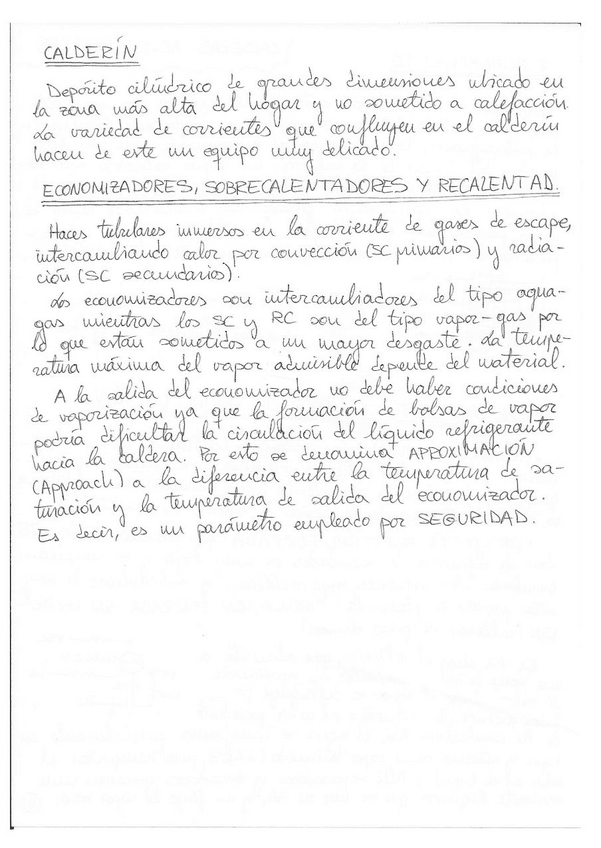 CALDERÍN
Depósito cilíndrico de grandes dimensiones ubicado en
la zona más alta del hogar y no sometido a calefacción.
La variedad de corrientes que confluyen en el calderín
hacen de este un equipo muy delicado.
ECONOMIZADORES, SOBRECALENTADORES Y RECALENTAD.
Haces tubulares inmersos en la corriente de gases de escape,
intercambiando calor por convección (SC primarios) y radia-
ción (SC secundarios).
Los economizadores son intercambiadores del tipo agua-
gas mientras los SC y RC son del tipo vapor-gas por
lo que están sometidos a un mayor desgaste. La tempe-
ratura máxima del vapor admisible depende del material.
A la salida del economizador no debe haber condiciones
de vaporización ya que la formación de bolsas de vapor
podría dificultar la circulación del líquido refrigerante
hacia la caldera. Por esto se denomina APROXIMACIÓN
(Approach) a la diferencia entre la temperatura de sa-
turación y la temperatura de salida del economizador.
Es decir, es un parámetro empleado por SEGURIDAD.